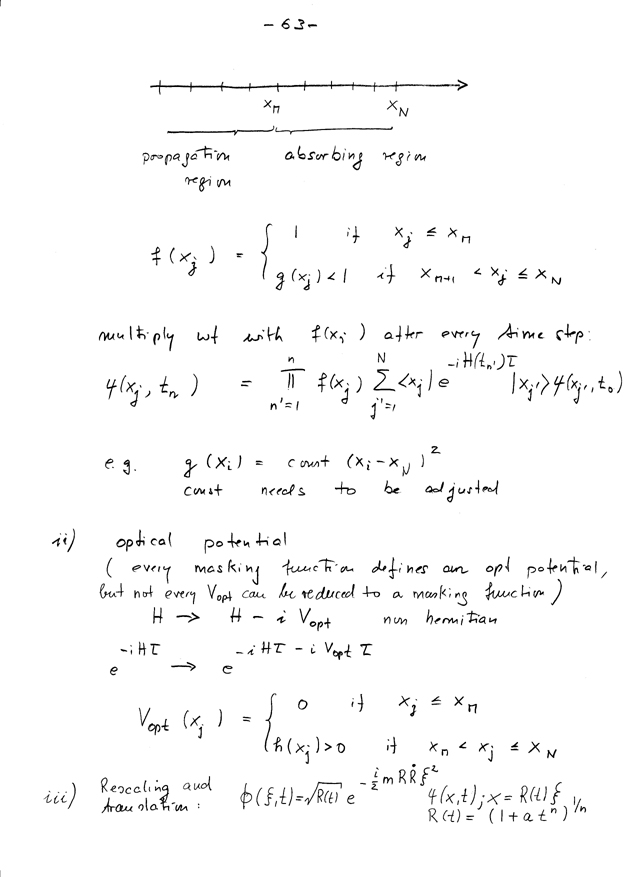 - 63 -
x_n x_N
propagation absorbing region
region
f(x_j) = { 1 if x_j ≤ x_n
g(x_j) < 1 if x_{n+1} < x_j ≤ x_N
multiply wf with f(x_j) after every time step:
ψ(x_j, t_n) = ∏_{n'=1}^{n} f(x_j) ∑_{j'=1}^{N} <x_j| e^{-iH(t_{n'})τ} |x_{j'}> ψ(x_{j'}, t_0)
e.g. g(x_i) = const (x_i - x_N)^2
const needs to be adjusted
ii) optical potential
( every masking function defines an opt potential,
but not every V_opt can be reduced to a masking function )
H → H - i V_opt non hermitian
e^{-iHτ} → e^{-iHτ - i V_opt τ}
V_opt (x_j) = { 0 if x_j ≤ x_n
h(x_j) > 0 if x_n < x_j ≤ x_N
iii) Rescaling and
translation : ϕ(ξ,t) = √R(t) e^{-\frac{i}{2} m R Ṙ ξ^2} ψ(x,t) ; x = R(t) ξ
R(t) = (1 + a t^n)^{1/n}